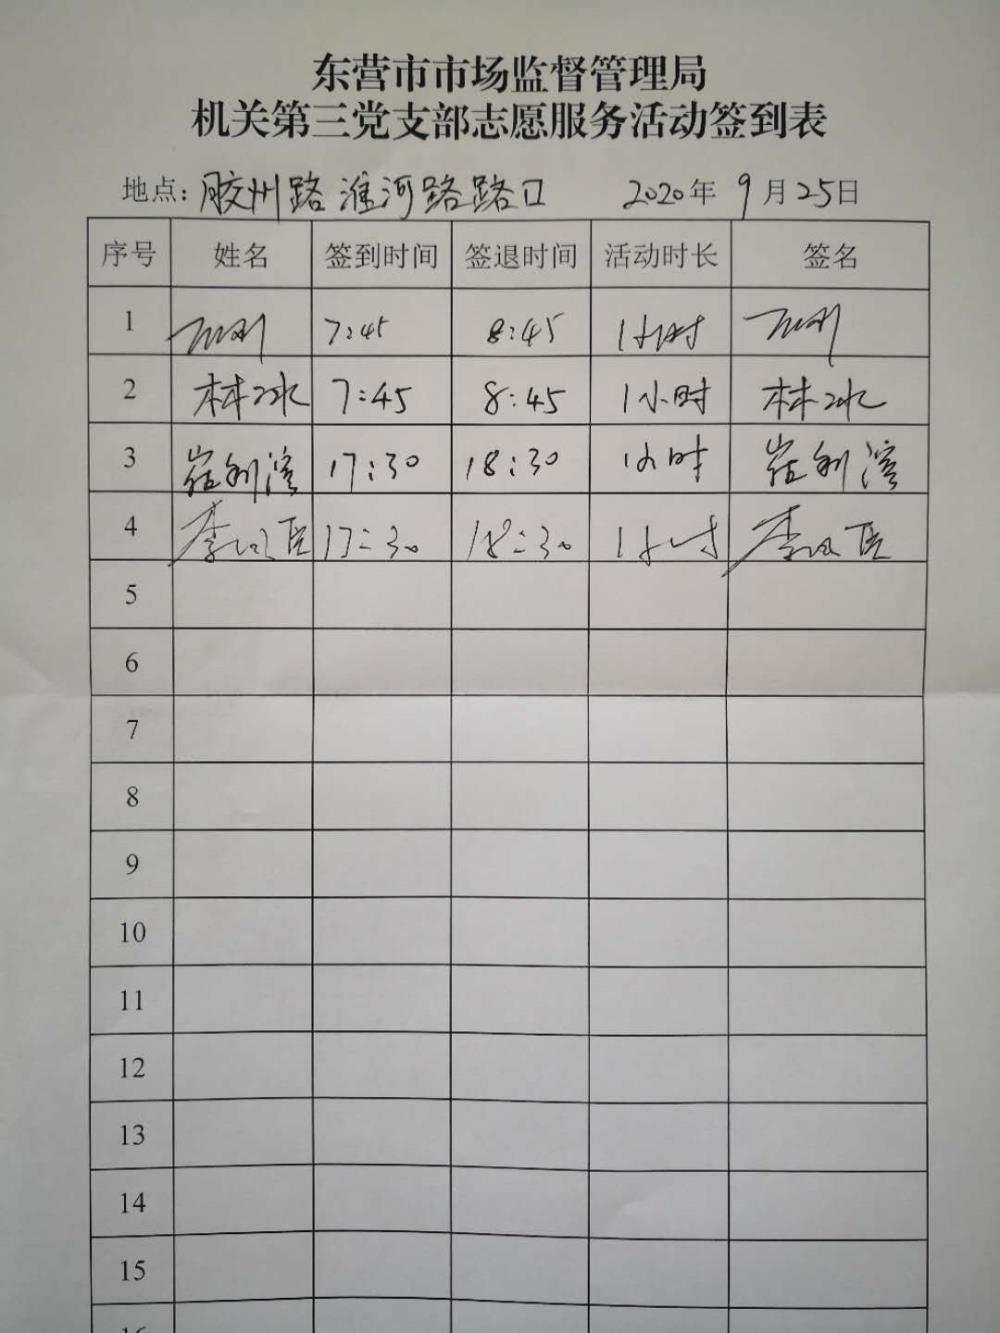 东营市市场监督管理局
机关第三党支部志愿服务活动签到表
地点: 胶州路淮河路路口 2020年9月25日
序号 姓名 签到时间 签退时间 活动时长 签名
1 7:45 8:45 1小时
2 林冰 7:45 8:45 1小时 林冰
3 崔利滨 17:30 18:30 1小时 崔利滨
4 李 17:30 18:30 1小时 李
5
6
7
8
9
10
11
12
13
14
15
16